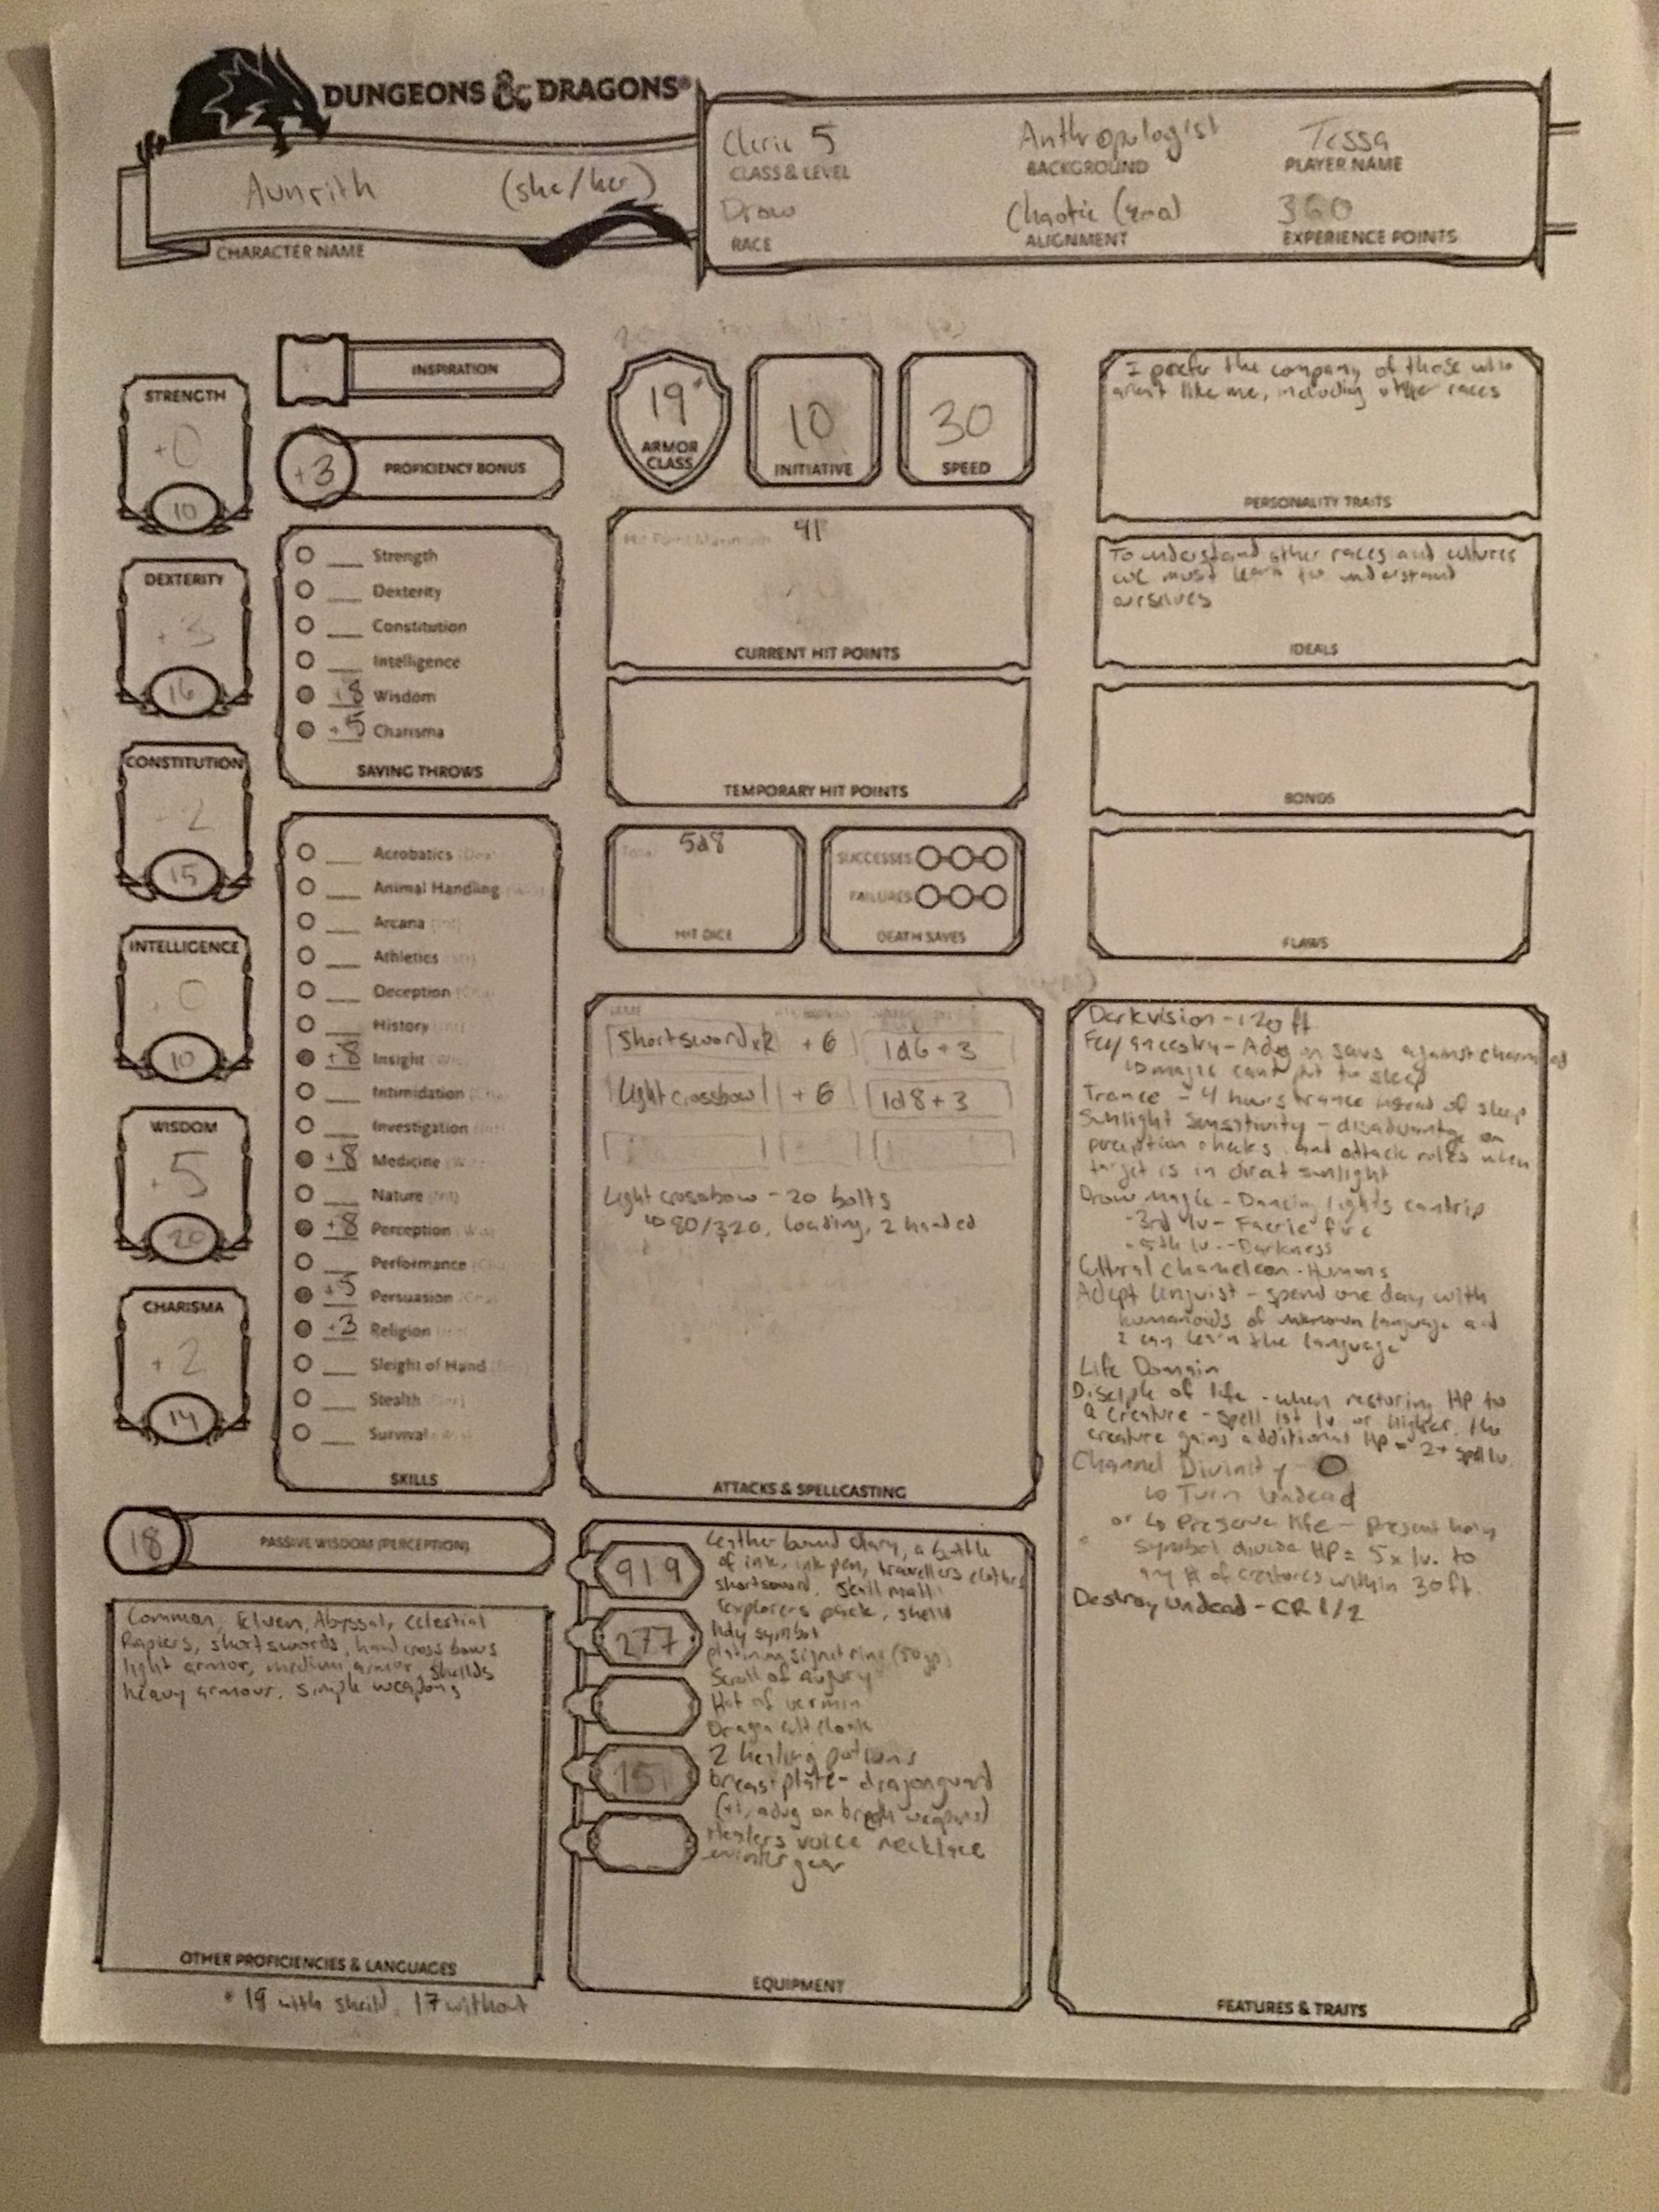 DUNGEONS & DRAGONS®
Aunrith (she/her)
CHARACTER NAME
Cleric 5
CLASS & LEVEL
Anthropologist
BACKGROUND
Tessa
PLAYER NAME
Drow
RACE
Chaotic
ALIGNMENT
360
EXPERIENCE POINTS
STRENGTH
+0
10
DEXTERITY
+3
16
CONSTITUTION
2
15
INTELLIGENCE
+0
10
WISDOM
+5
20
CHARISMA
+2
14
INSPIRATION
+3
PROFICIENCY BONUS
Strength
Dexterity
Constitution
Intelligence
+8 Wisdom
+5 Charisma
SAVING THROWS
Acrobatics (Dex)
Animal Handling
Arcana (Int)
Athletics (Str)
Deception (Cha)
History (Int)
+8 Insight
Intimidation
Investigation (Int)
+8 Medicine
Nature (Int)
+8 Perception (Wis)
Performance (Cha)
+5 Persuasion (Cha)
+3 Religion (Int)
Sleight of Hand
Stealth
Survival
SKILLS
18
PASSIVE WISDOM (PERCEPTION)
Common, Elven, Abyssal, Celestial
Rapiers, shortswords, hand cross bows
light armor, medium armor, sheilds
heavy armour, simple weapons
OTHER PROFICIENCIES & LANGUAGES
* 19 with sheild, 17 without
19*
ARMOR CLASS
10
INITIATIVE
30
SPEED
Hit Point Maximum 91
CURRENT HIT POINTS
TEMPORARY HIT POINTS
Total 5d8
HIT DICE
SUCCESSES
FAILURES
DEATH SAVES
NAME
Shortsword x2 +6 1d6+3
Light crossbow +6 1d8+3
Light crossbow - 20 bolts
↳ 80/320, loading, 2 handed
ATTACKS & SPELLCASTING
919
277
151
Leather bound diary, a bottle
of ink, ink pen, travellers clothes
shortsword,
Explorers pack, sheild
Holy symbol
platinum signet ring (50gp)
Scroll of augury
Hat of vermin
Dragon cult cloak
2 healing potions
breastplate - dragonguard
(+1, advg on breath weapons)
Healers voice necklace
winter gear
EQUIPMENT
I prefer the company of those who
aren't like me, including other races
PERSONALITY TRAITS
To understand other races and cultures
we must learn to understand
ourselves
IDEALS
BONDS
FLAWS
Darkvision - 120 ft
Fey ancestry - Advg on saves against charmed
↳ magic cant put to sleep
Trance - 4 hours trance instead of sleep
Sunlight Sensitivity - disadvantge on
perception checks and attack rolls when
target is in direct sunlight
Drow magic - Dancing lights cantrip
- 3rd lv - Faerie fire
- 5th lv. - Darkness
Cultural Chameleon - Humans
Adept linguist - spend one day with
humanoids of unknown language and
I can learn the language
Life Domain
Disciple of life - when restoring HP to
a creature - spell 1st lv or higher, the
creature gains additional HP = 2+ spell lv.
Channel Divinity - O
↳ Turn Undead
or ↳ Preserve life - present holy
symbol divide HP = 5 x lv. to
any # of creatures within 30ft.
Destroy Undead - CR 1/2
FEATURES & TRAITS